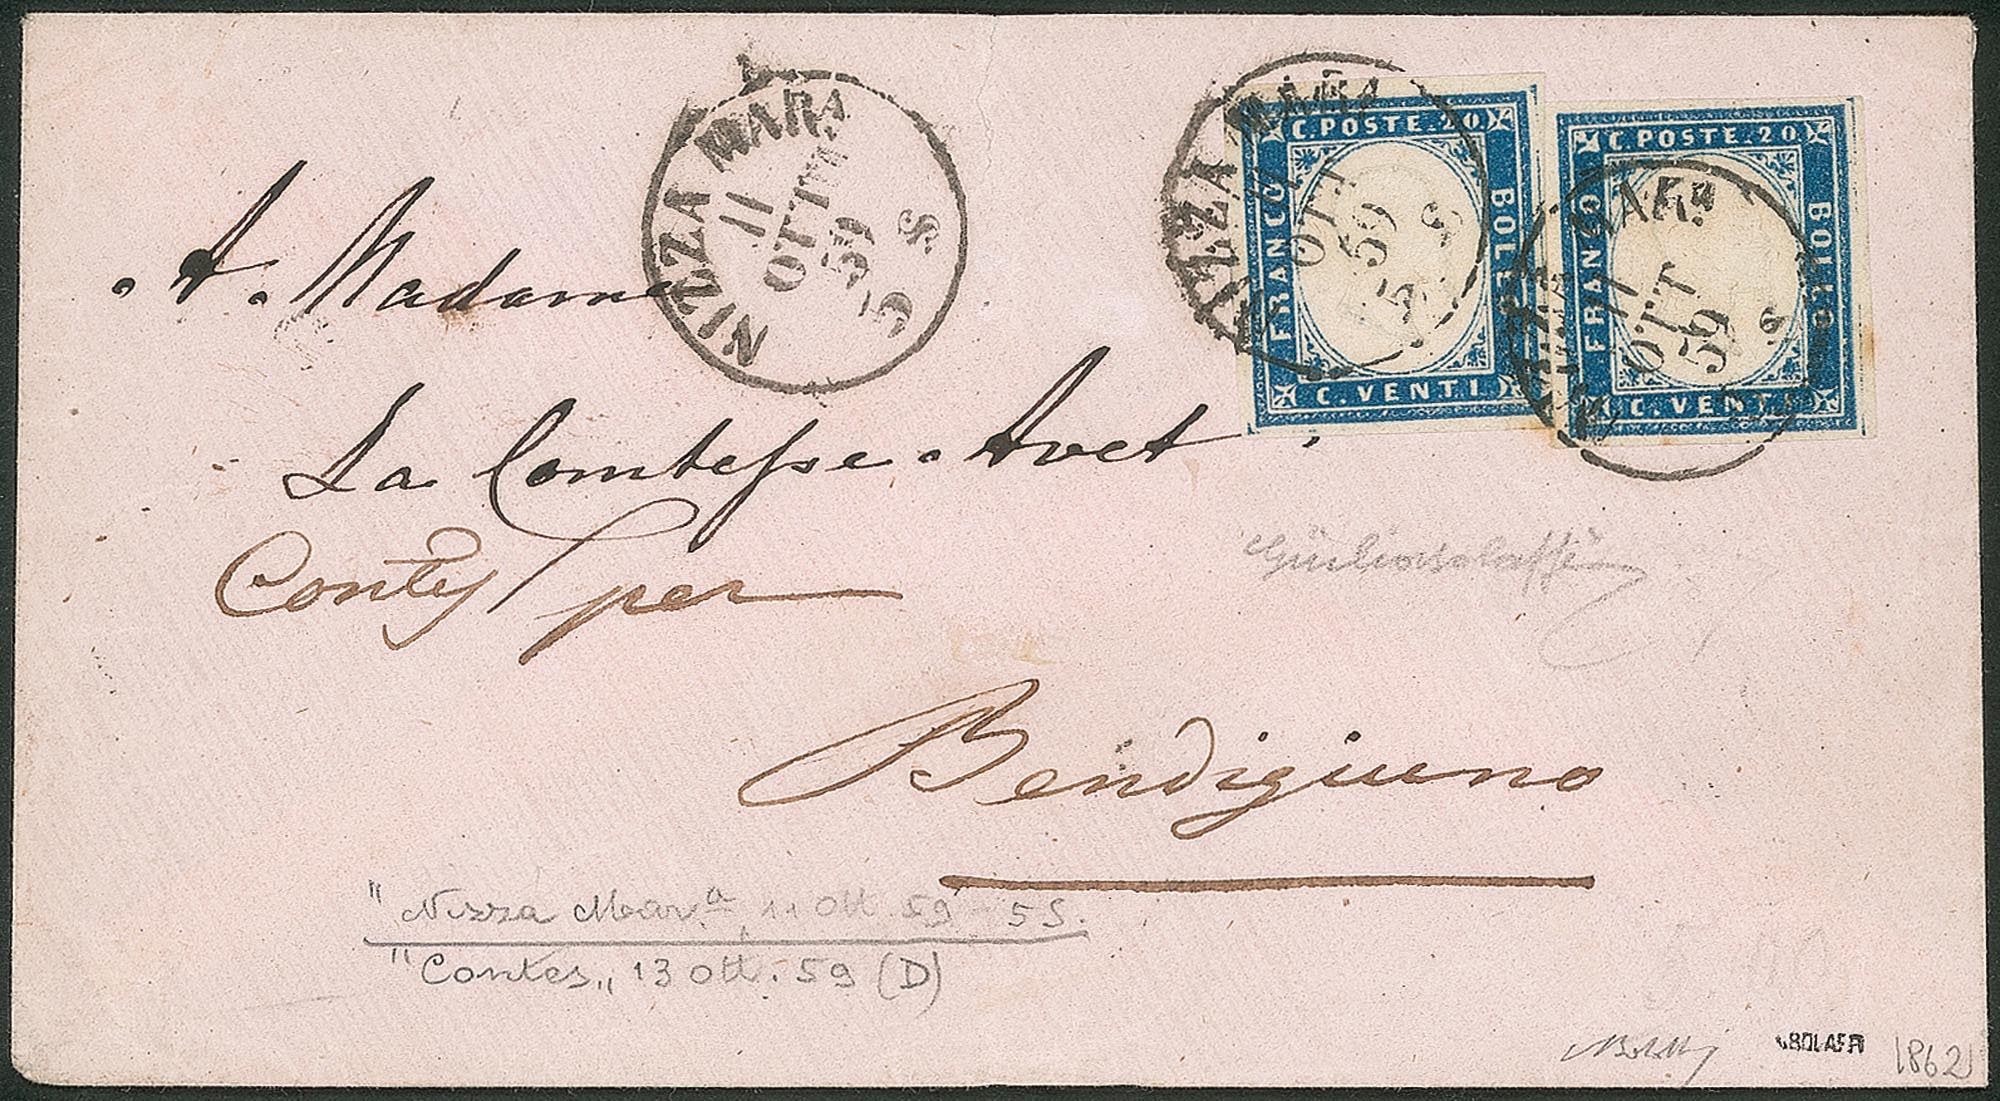 NIZZA MARA
11
OTT
59
5 S
NIZZA MARA
11
OTT
59
5 S
C. POSTE. 20
FRANCO
BOLLO
C. VENTI
MARA
11
OTT
59
S
C. POSTE. 20
FRANCO
BOLLO
C. VENTI
A. Madame
La Comtesse. Avet
Contes per
Bendigiuno
Giulio Bolaffi
"Nizza Mar.a 11 Ott. 59 - 5S.
"Contes" 13 ott. 59 (D)
ABOLAFFI
1862